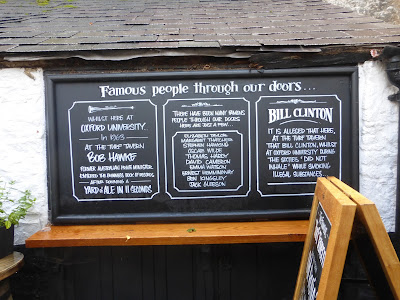 Famous people through our doors...
WHILST HERE AT
OXFORD UNIVERSITY
In 1963
AT THE TURF TAVERN
BOB HAWKE
FORMER AUSTRALIAN PRIME MINISTER
ENTERED THE GUINNESS BOOK OF RECORDS
AFTER DOWNING A
YARD of ALE IN 11 SECONDS
THERE HAVE BEEN MANY FAMOUS
PEOPLE THROUGH OUR DOORS.
HERE ARE JUST A FEW...
ELIZABETH TAYLOR
MARGARET THATCHER
STEPHEN HAWKING
OSCAR WILDE
THOMAS HARDY
DAVID CAMERON
EMMA WATSON
ERNEST HEMINGWAY
BEN KINGSLEY
JACK GLEESON
BILL CLINTON
IT IS ALLEGED THAT HERE,
AT THE TURF TAVERN
THAT BILL CLINTON, WHILST
AT OXFORD UNIVERSITY DURING
THE SIXTIES, "DID NOT
INHALE" WHILE SMOKING
ILLEGAL SUBSTANCES...